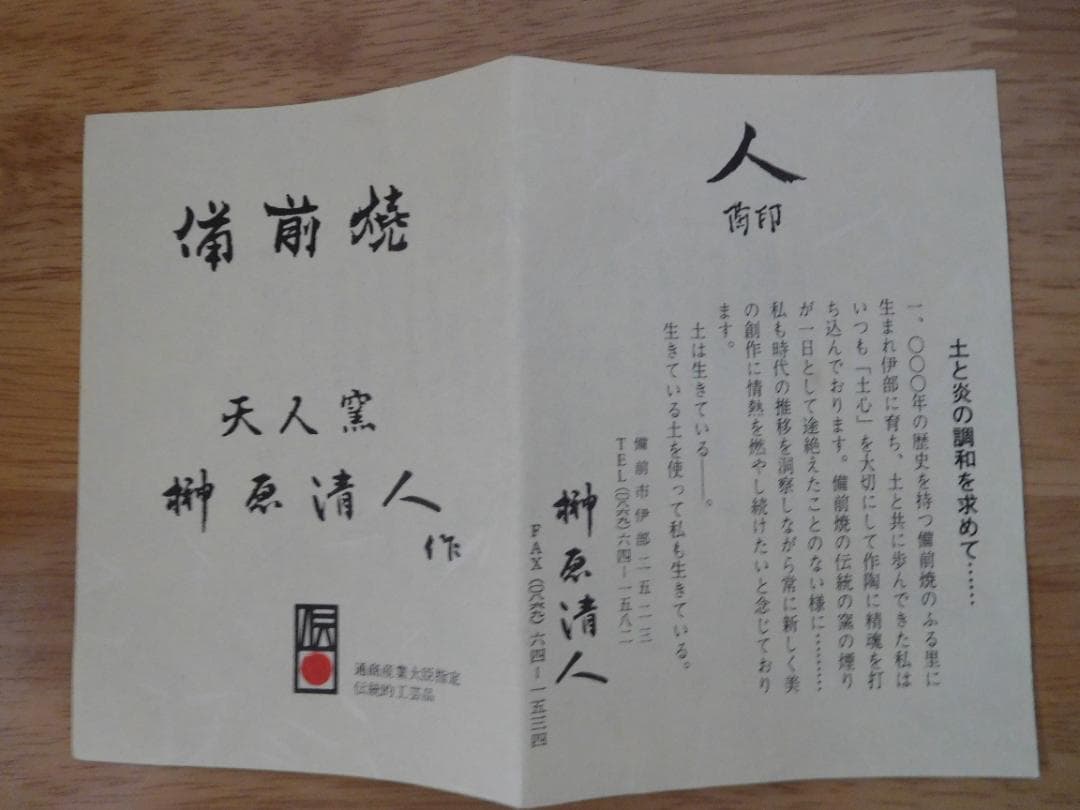 備前燒
天人窯
榊原清人
作
伝
通商産業大臣指定
伝統的工芸品
人
印
土と炎の調和を求めて……
一、〇〇〇年の歴史を持つ備前焼のふる里に
生まれ伊部に育ち、土と共に歩んできた私は
いつも「土心」を大切にして作陶に精魂を打
ち込んでおります。備前焼の伝統の窯の煙り
が一日として途絶えたことのない様に………
私も時代の推移を洞察しながら常に新しく美
の創作に情熱を燃やし続けたいと念じており
ます。
土は生きている――。
生きている土を使って私も生きている。
備前市伊部二五二三
TEL(〇八六九)六四―一五八二
榊原清人
FAX(〇八六九)六四―一五三四